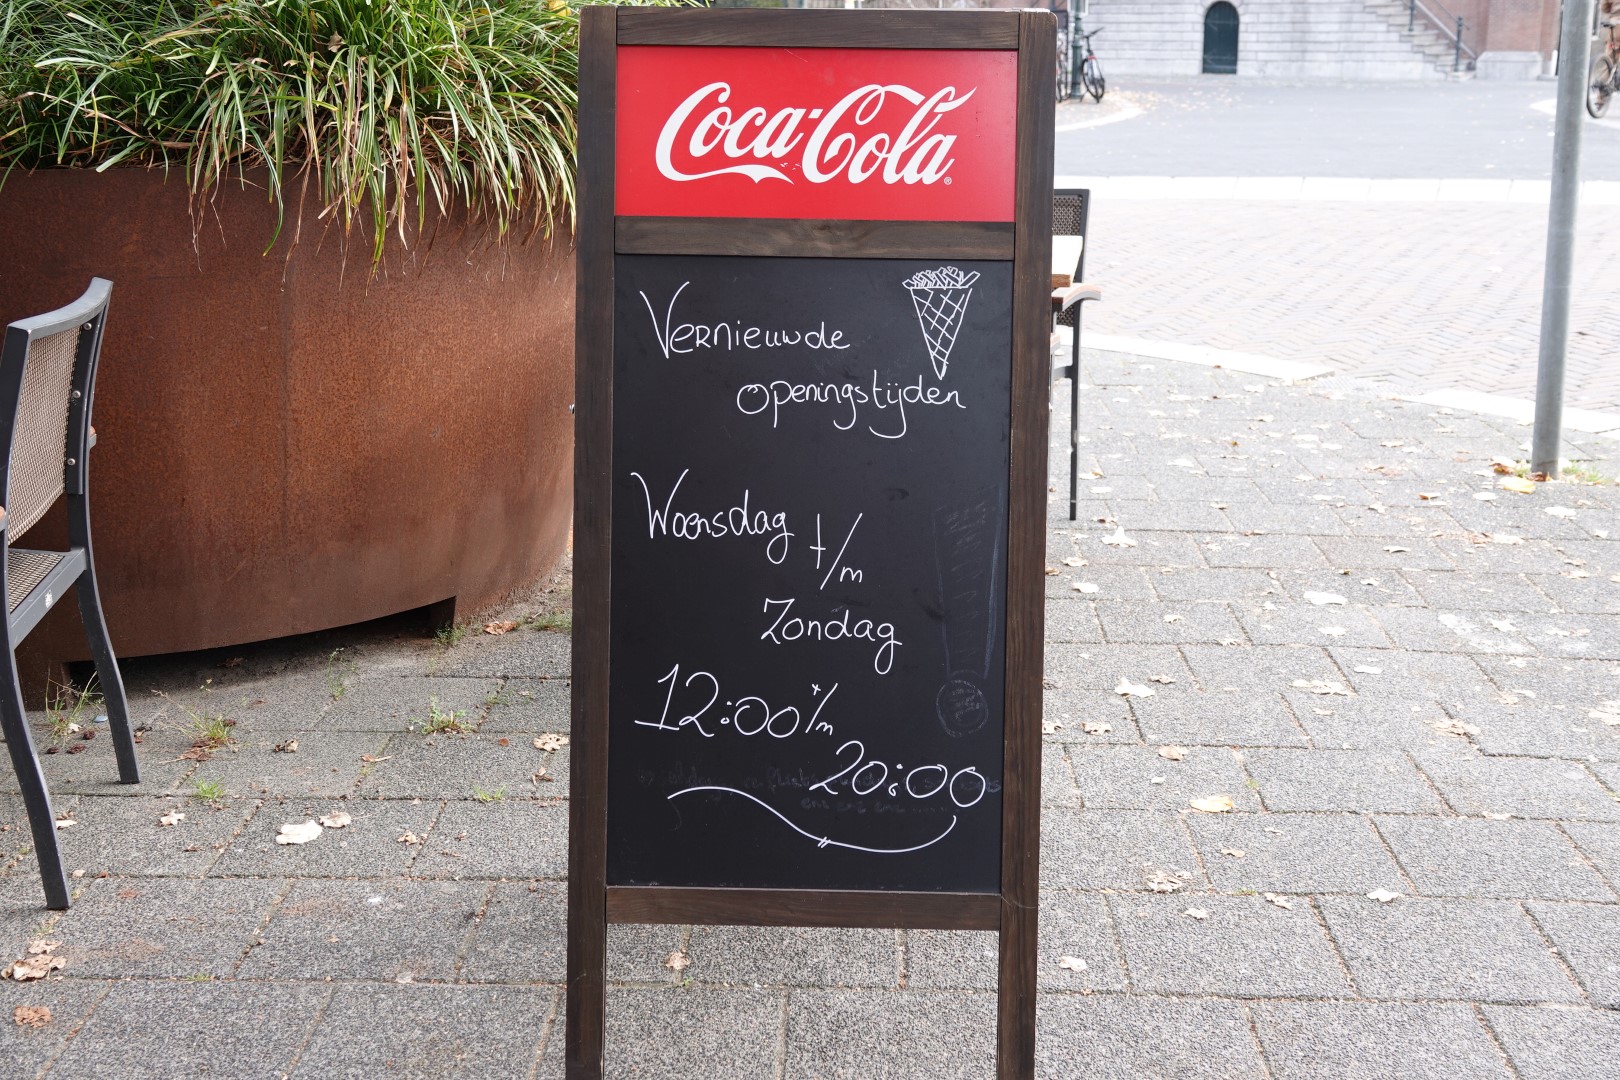 Coca-Cola®
Vernieuwde
openingstijden
Woensdag
t/m
Zondag
12:00 t/m
20:00